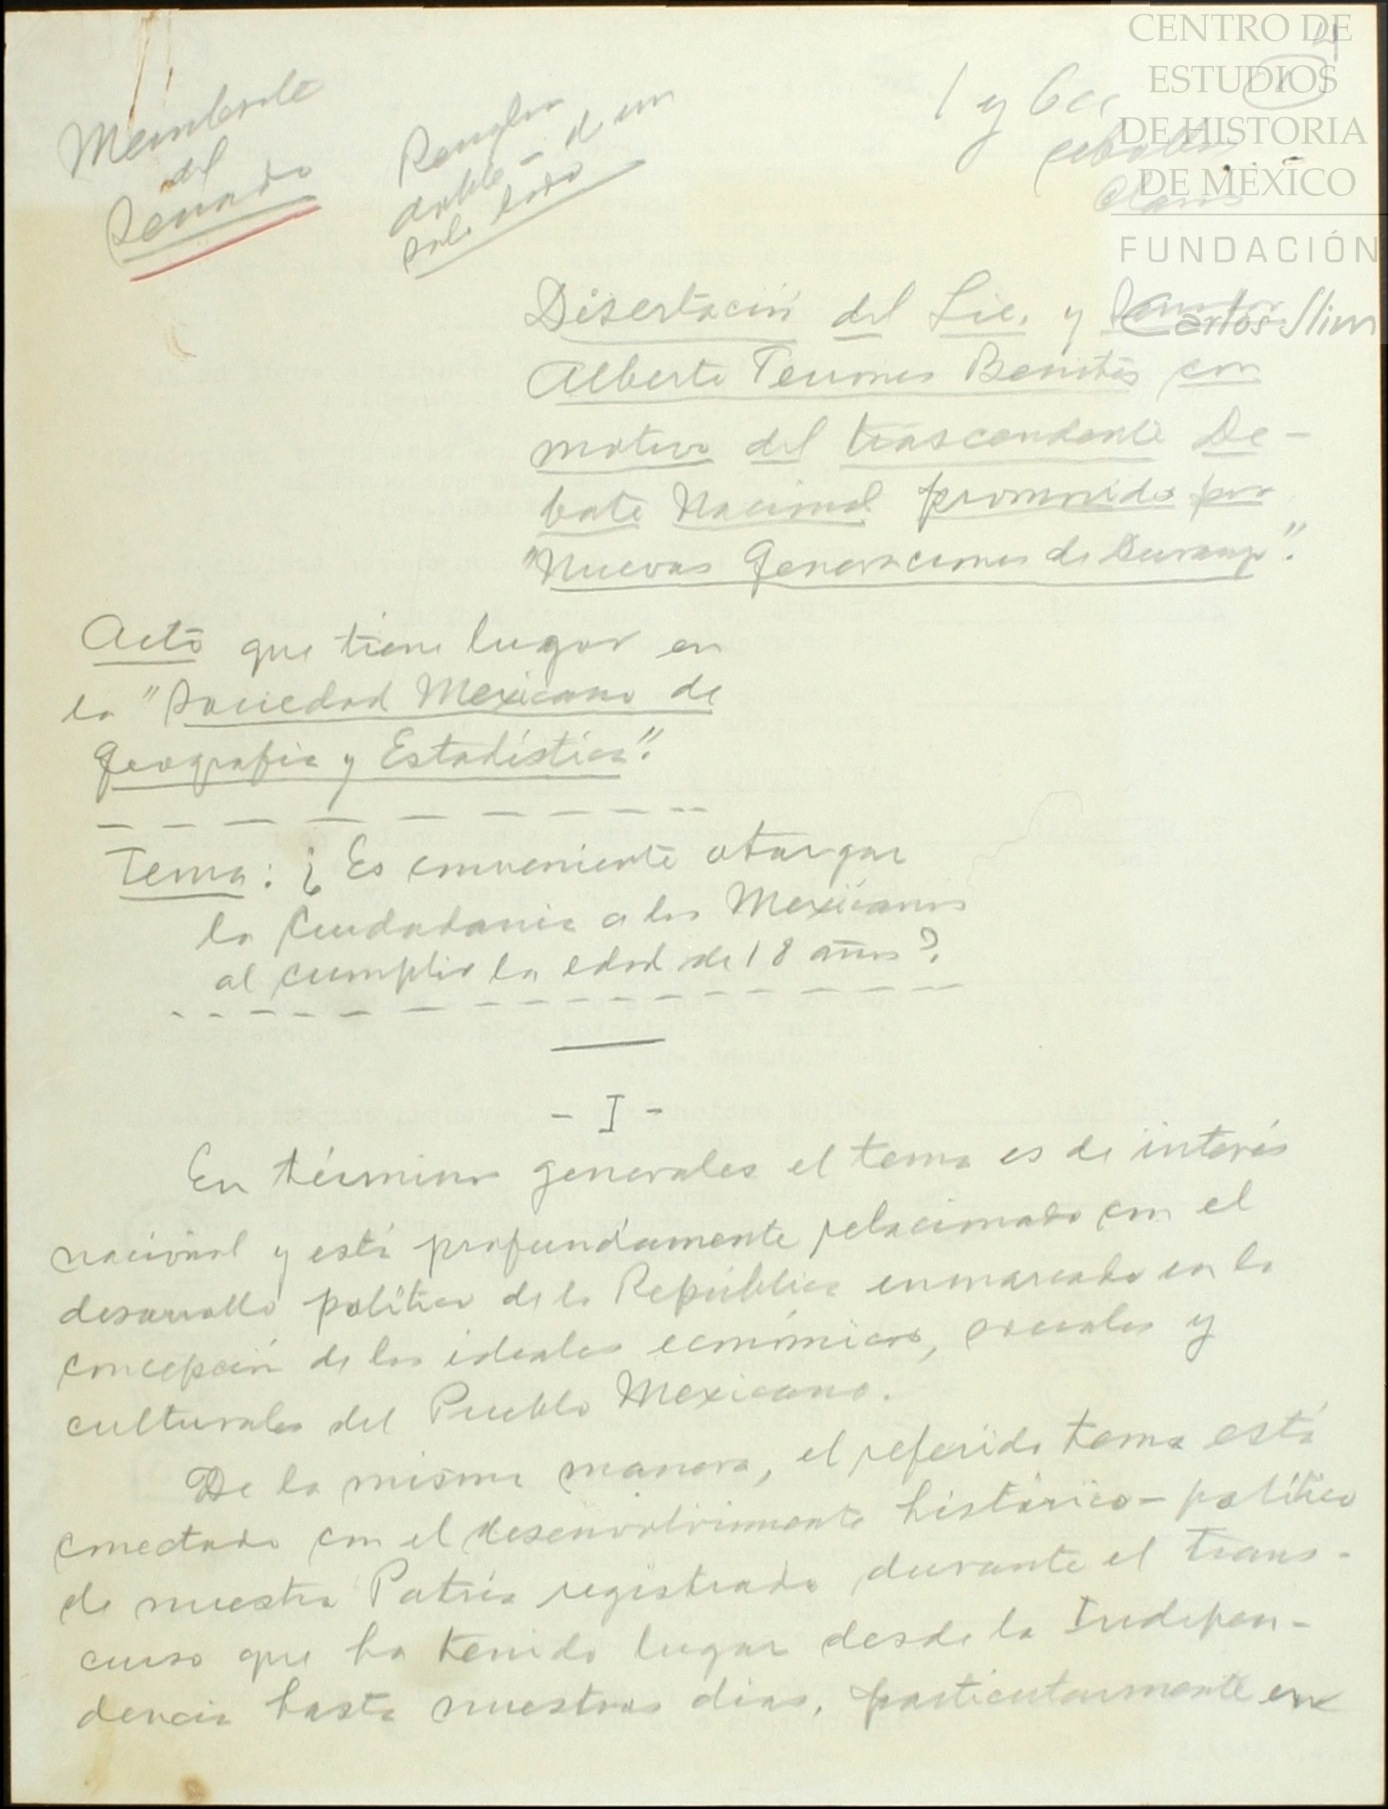 Membrete
del
Senado
Renglón
doble - d un
solo lado
1 y 6 cc
claros
CENTRO DE
ESTUDIOS
DE HISTORIA
DE MÉXICO
FUNDACIÓN
Carlos Slim
Disertación del Lic. y Senador
Alberto Terrones Benítes con
motivo del trascendente De-
bate Nacional promovido por
"Nuevas Generaciones de Durango".
Acto que tiene lugar en
la "Sociedad Mexicana de
Geografía y Estadística".
Tema: ¿Es conveniente otorgar
la Ciudadanía a los Mexicanos
al cumplir la edad de 18 años?
- I -
En términos generales el tema es de interés
nacional y está profundamente relacionado con el
desarrollo político de la República enmarcado en la
concepción de los ideales económicos, sociales y
culturales del Pueblo Mexicano.
De la misma manera, el referido tema está
conectado con el desenvolvimiento histórico-político
de nuestra Patria registrado durante el trans-
curso que ha tenido lugar desde la Indepen-
dencia hasta nuestros días, particularmente en